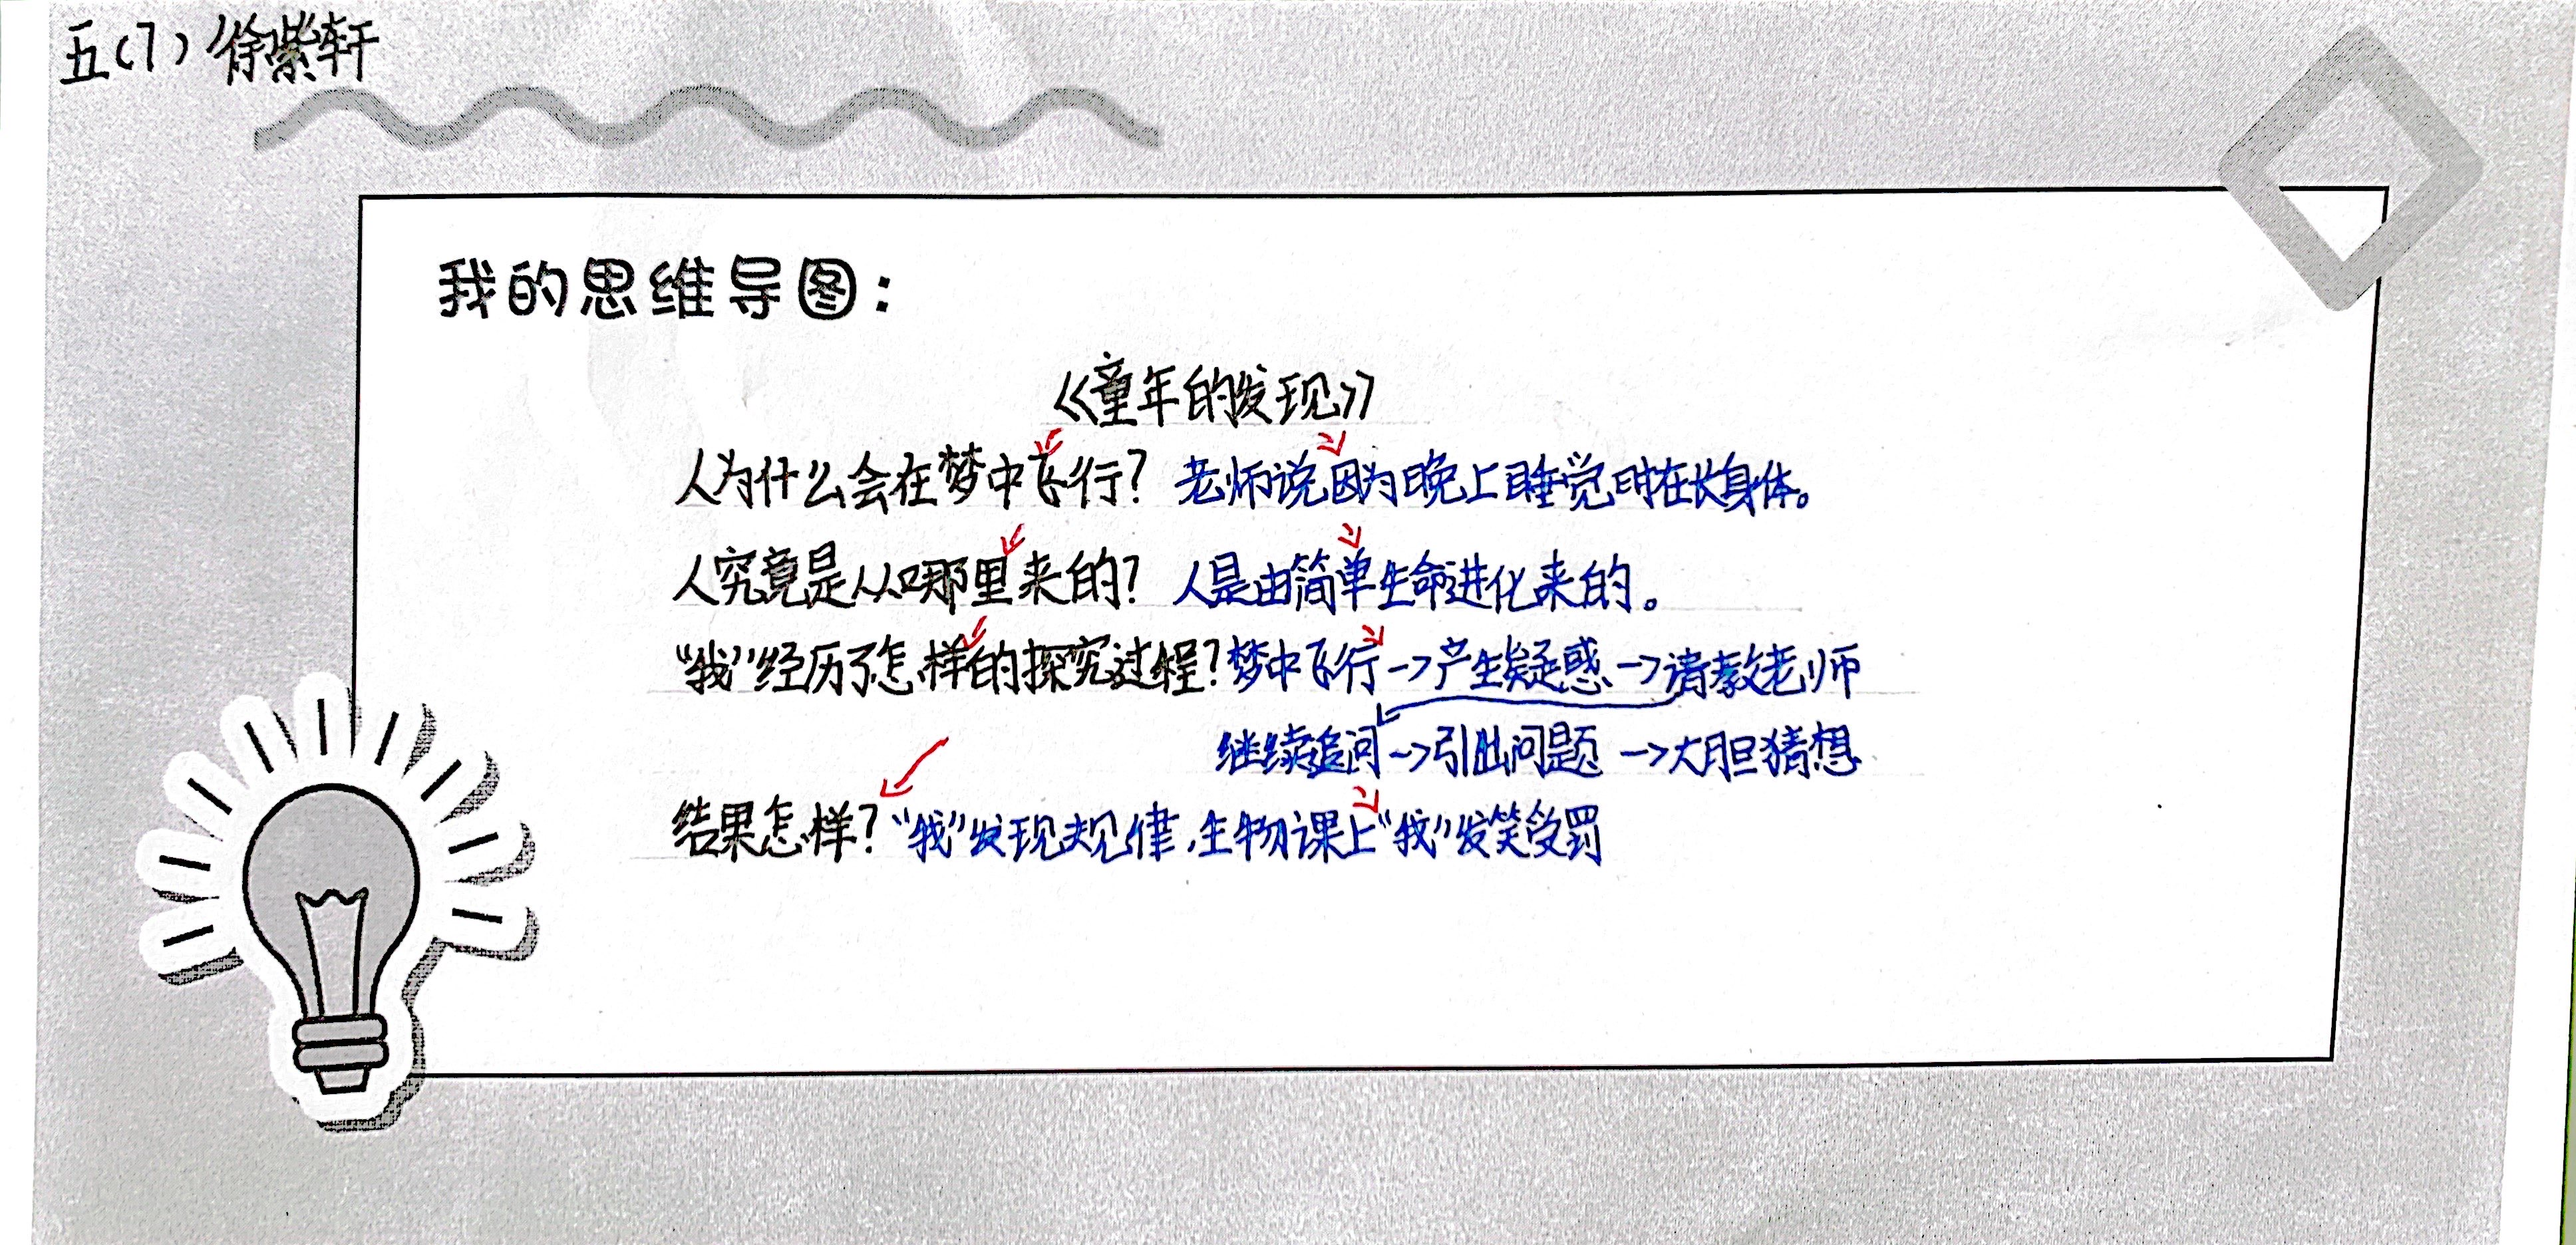 五(7)徐紫轩
我的思维导图：
《童年的发现》
人为什么会在梦中飞行？老师说因为晚上睡觉时在长身体。
人究竟是从哪里来的？人是由简单生命进化来的。
“我”经历了怎样的探究过程？梦中飞行→产生疑惑→请教老师
继续追问→引出问题→大胆猜想
结果怎样？“我”发现规律，生物课上“我”发笑受罚